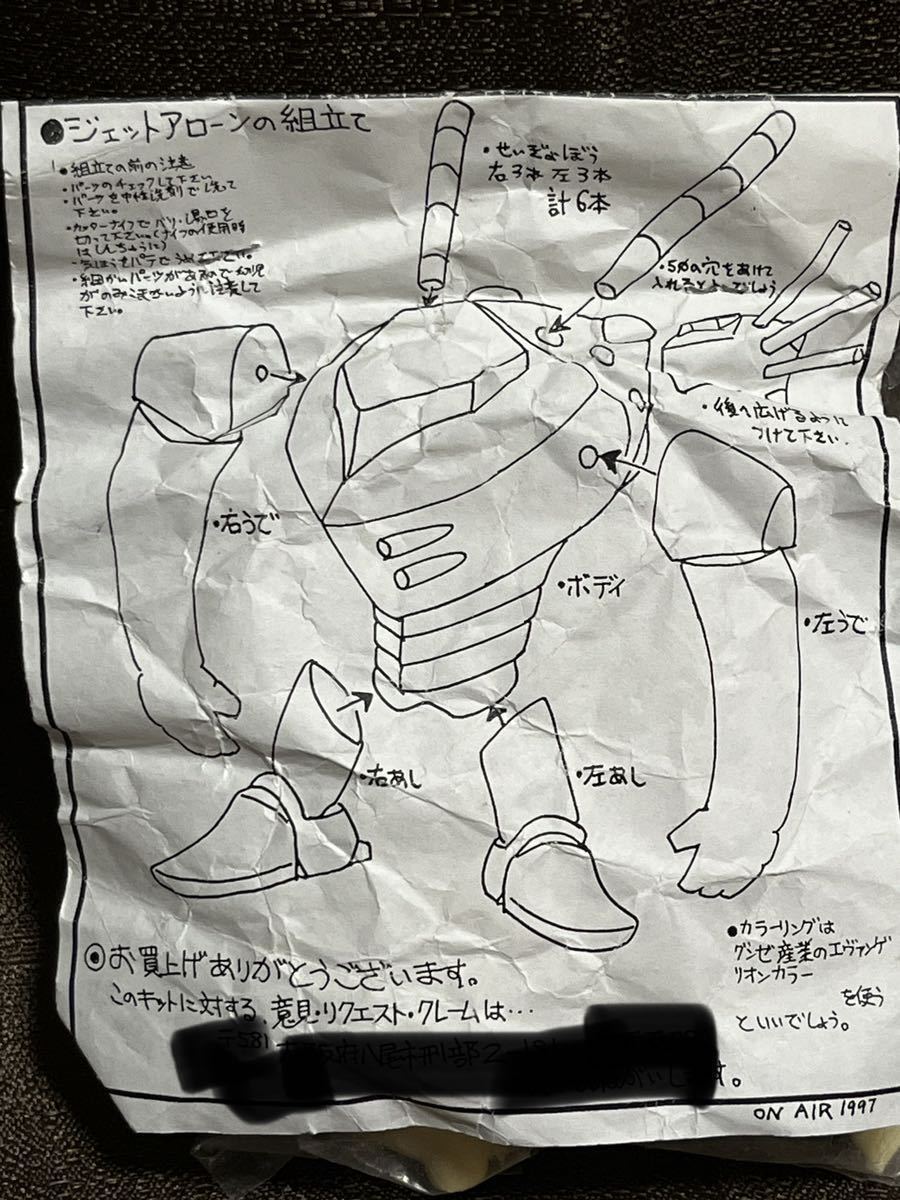 ●ジェットアローンの組立て
●組立ての前の注意
・パーツのチェックして下さい
・パーツを中性洗剤で洗って
下さい。
・カッターナイフでバリ・湯口を
切って下さい。(ナイフの使用時
はしんちょうに)
・気ほうをパテでうめて下さい。
・細かいパーツがあるので幼児
がのみこまないように注意して
下さい。
・せいぎょぼう
右3本 左3本
計6本
・5φの穴をあけて
入れるとよいでしょう
・後へ広げるように
つけて下さい.
・右うで
・ボディ
・左うで
・右あし
・左あし
●カラーリングは
グンゼ産業のエヴァンゲ
リオンカラー
を使う
といいでしょう。
◉お買上げありがとうございます。
このキットに対する、意見・リクエスト・クレームは…
〒581
ON AIR 1997